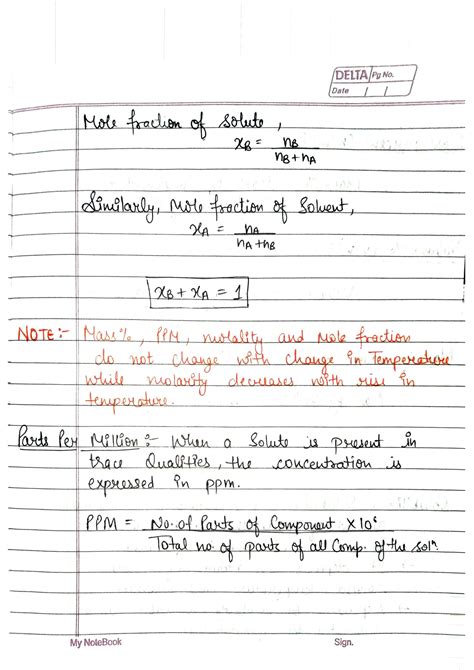 DELTA Pg No.
Date / /
Mole fraction of Solute,
xB = nB / nB + nA
Similarly, Mole fraction of Solvent,
xA = nA / nA + nB
xB + xA = 1
NOTE:- Mass%, PPM, molality and Mole fraction
do not change with change in Temperature
while molarity decreases with rise in
temperature.
Parts Per Million:- When a Solute is present in
trace Qualities, the concentration is
expressed in ppm.
PPM = No. of Parts of Component × 10⁶
Total no. of parts of all Comp. of the solⁿ.
My NoteBook Sign.